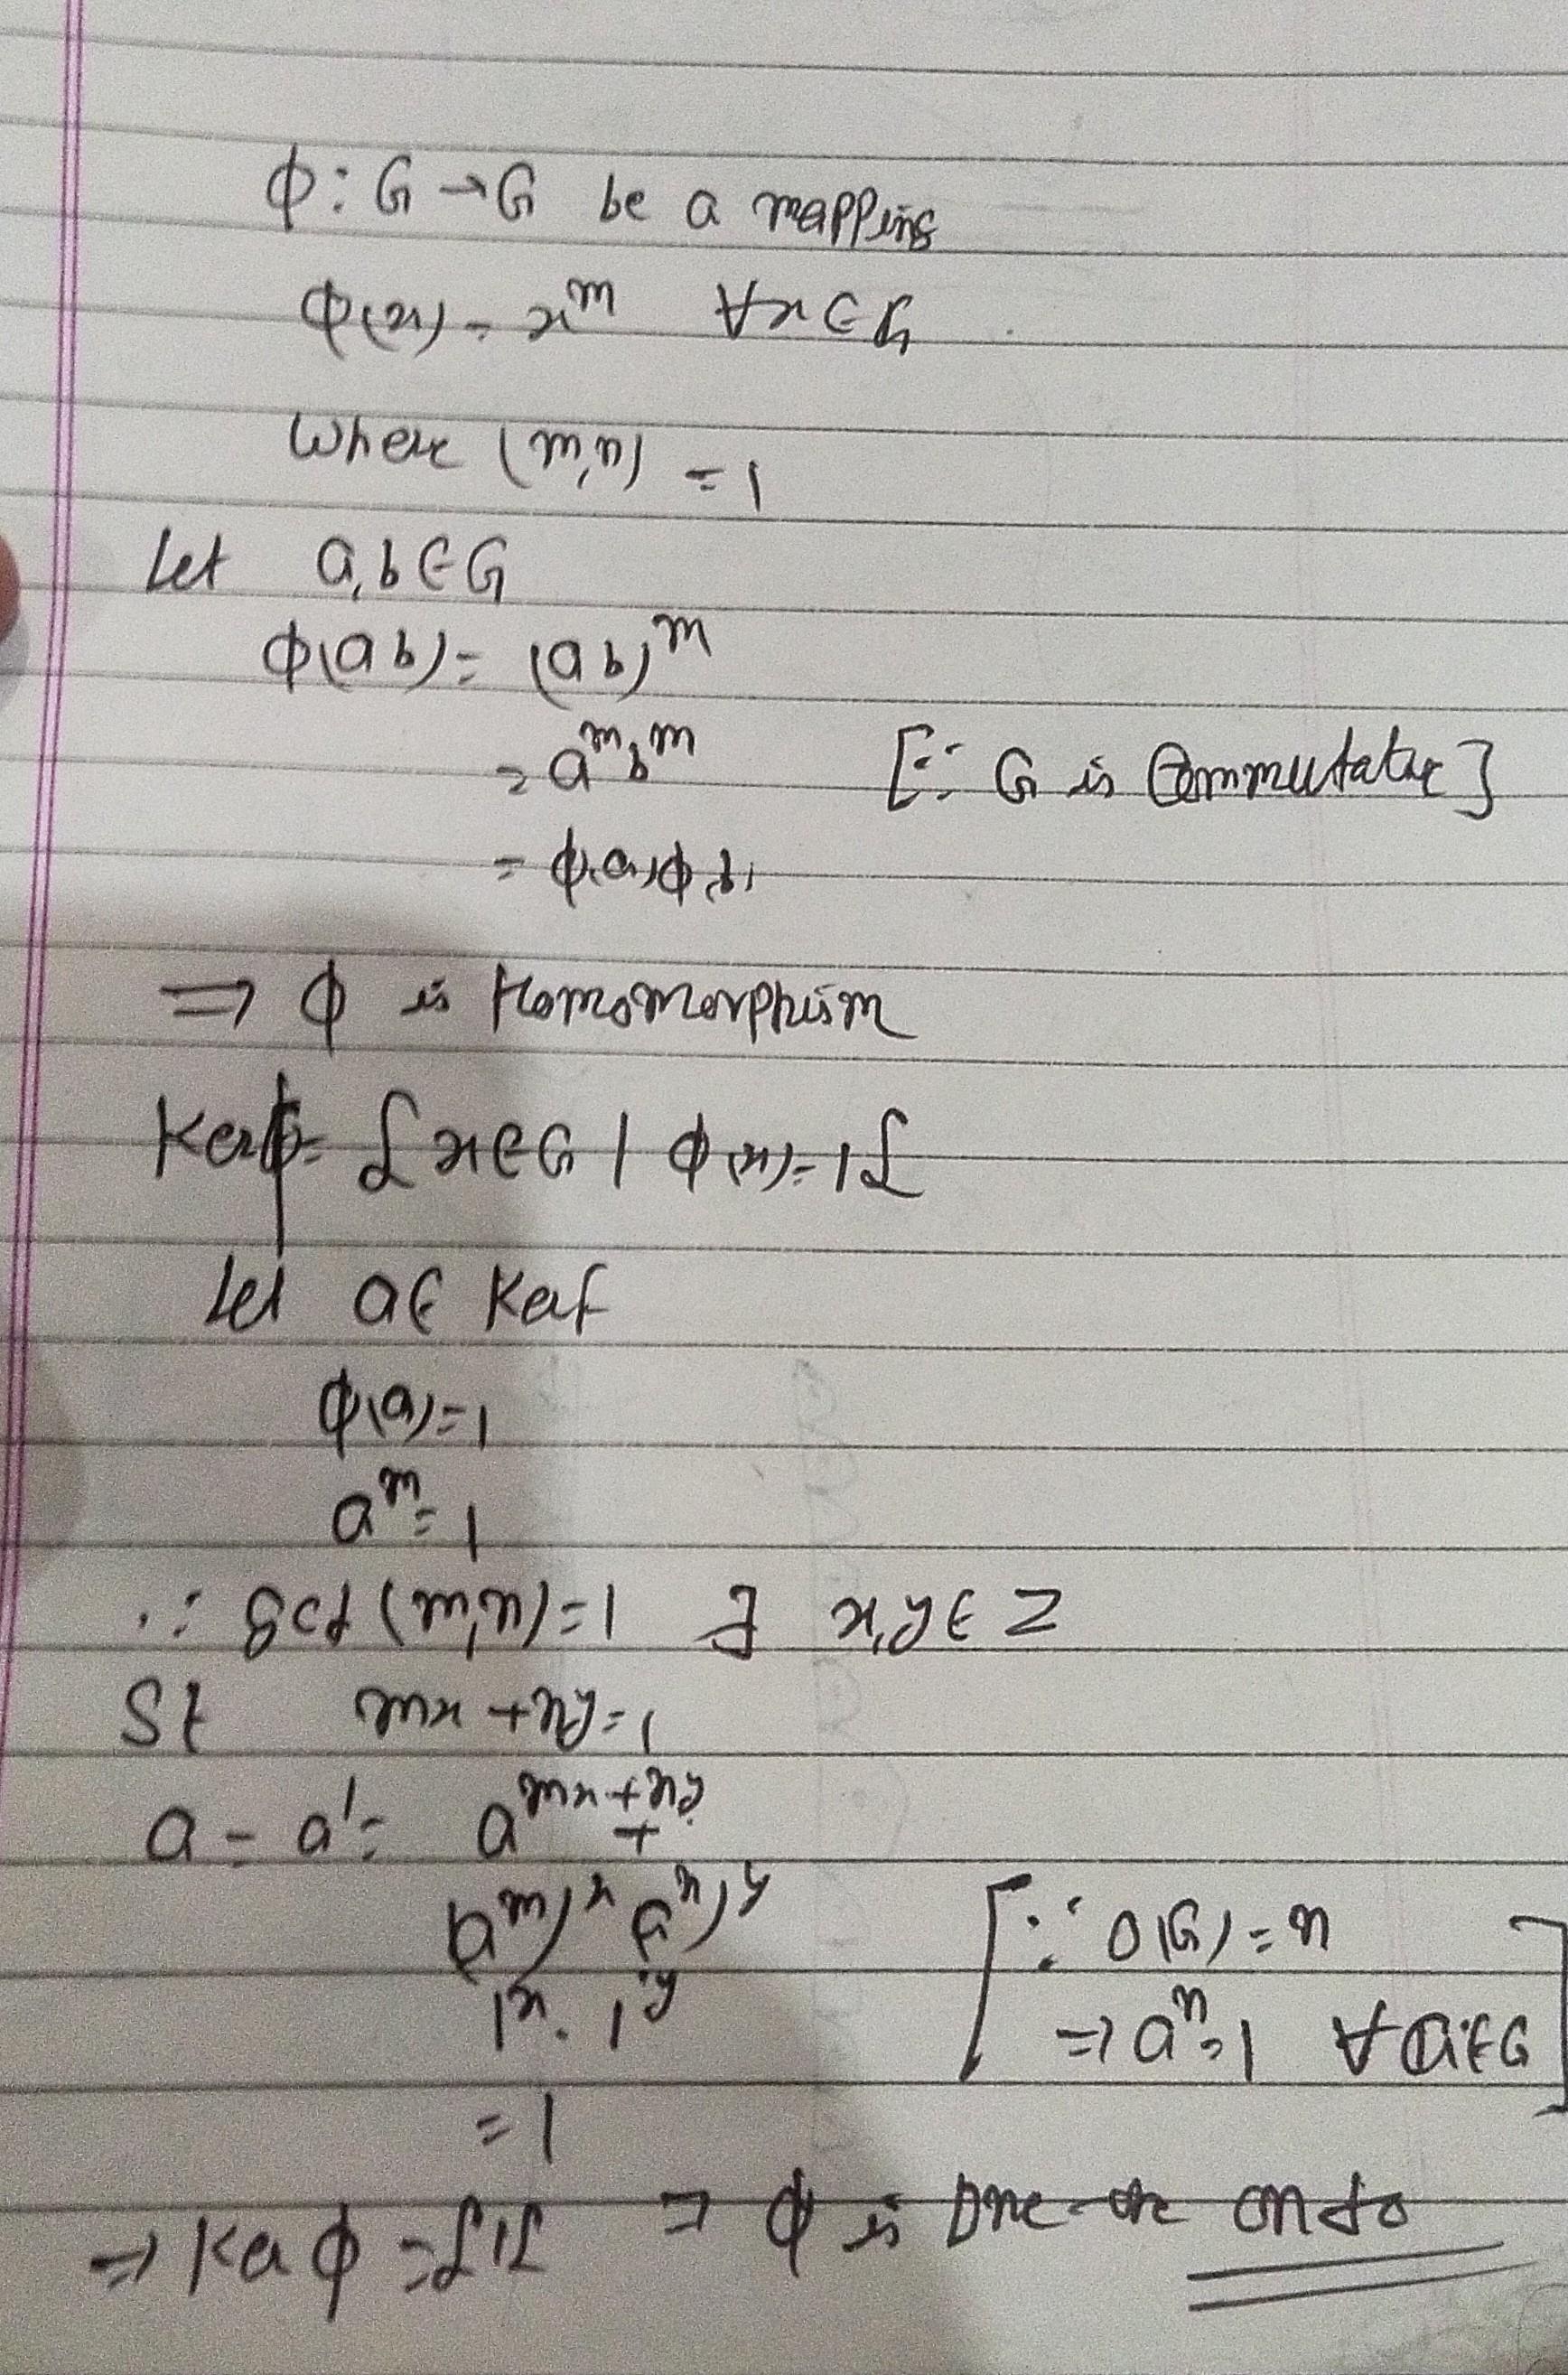 ϕ: G → G be a mapping
ϕ(x) = x^m ∀ x ∈ G
where (m,n) = 1
Let a,b ∈ G
ϕ(ab) = (ab)^m
= a^m b^m [∵ G is Commutative]
= ϕ(a) ϕ(b)
⇒ ϕ is Homomorphism
Ker ϕ = { x ∈ G | ϕ(x) = 1 }
Let a ∈ Kerf
ϕ(a) = 1
a^m = 1
∵ gcd (m,n) = 1 ∃ x,y ∈ Z
St mx + ny = 1
a = a^1 = a^{mx+ny}
(a^m)^x (a^n)^y [∵ O(G) = n
1^x . 1^y ⇒ a^n = 1 ∀ a ∈ G]
= 1
⇒ Ker ϕ = {1} ⇒ ϕ is one-one onto